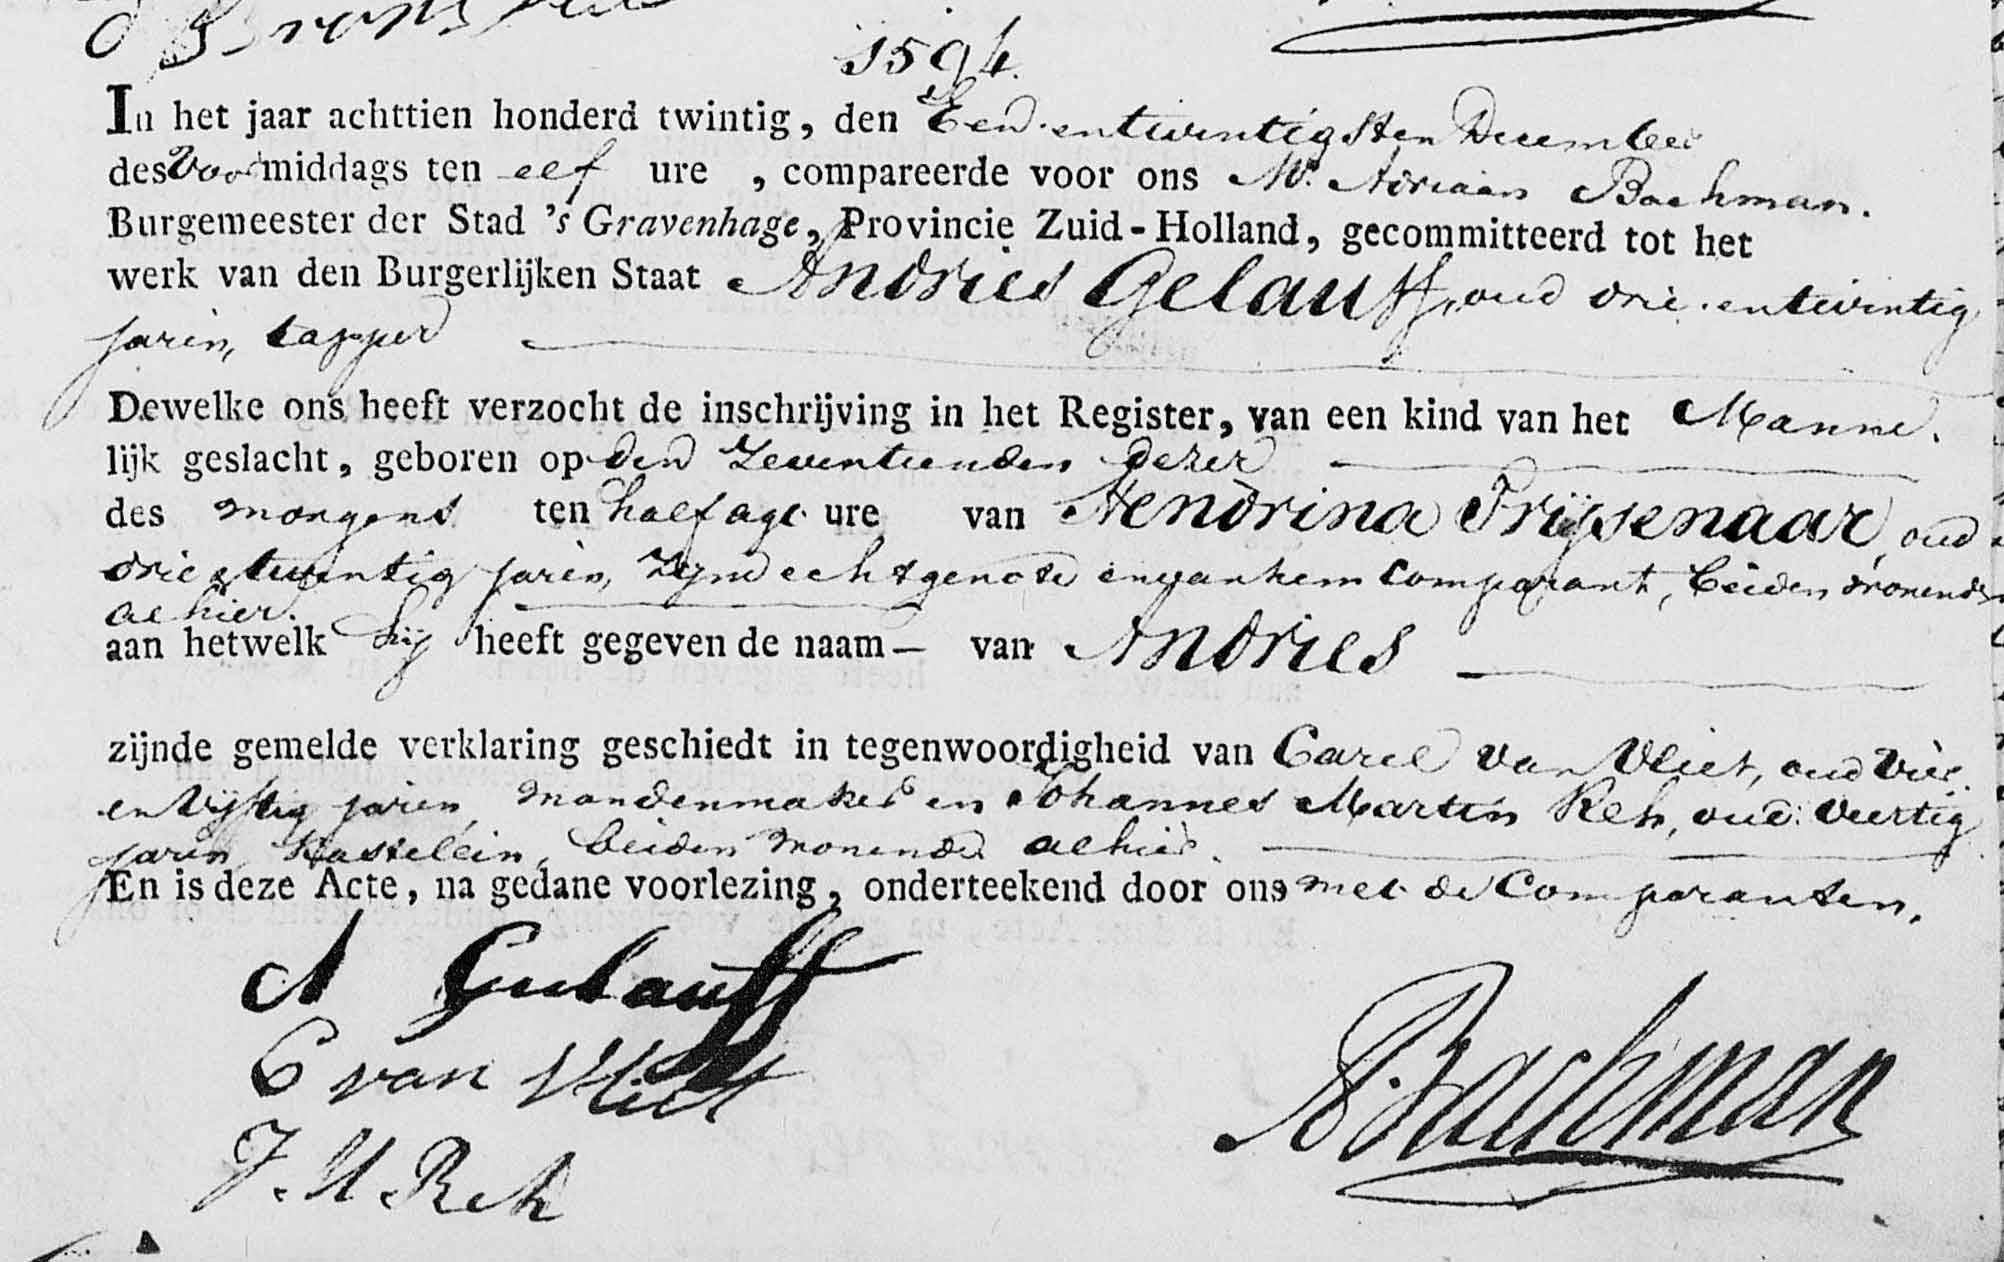 1594.
In het jaar achttien honderd twintig, den Een entwintigsten December
des Voormiddags ten elf ure , compareerde voor ons Mr. Adriaan Bachman.
Burgemeester der Stad 's Gravenhage, Provincie Zuid-Holland, gecommitteerd tot het
werk van den Burgerlijken Staat Andries Gelauff, oud drie entwintig
jaren, tapper
Dewelke ons heeft verzocht de inschrijving in het Register, van een kind van het Manne
lijk geslacht, geboren op den Zeventienden dezer
des morgens ten half agt ure van Hendrina Frijsenaar, oud
drie entwintig jaren, Zijne echtgenote en van hem Comparant, beiden wonende
alhier.
aan hetwelk hij heeft gegeven de naam — van Andries
zijnde gemelde verklaring geschiedt in tegenwoordigheid van Carel van Vliet, oud vier
en vijftig jaren, mandenmaker en Johannes Martin Reh, oud veertig
jaren, Kastelein, beiden wonende alhier.
En is deze Acte, na gedane voorlezing, onderteekend door ons met de Comparanten.
A Gelauff
C van Vliet
J. M. Reh
A Bachman